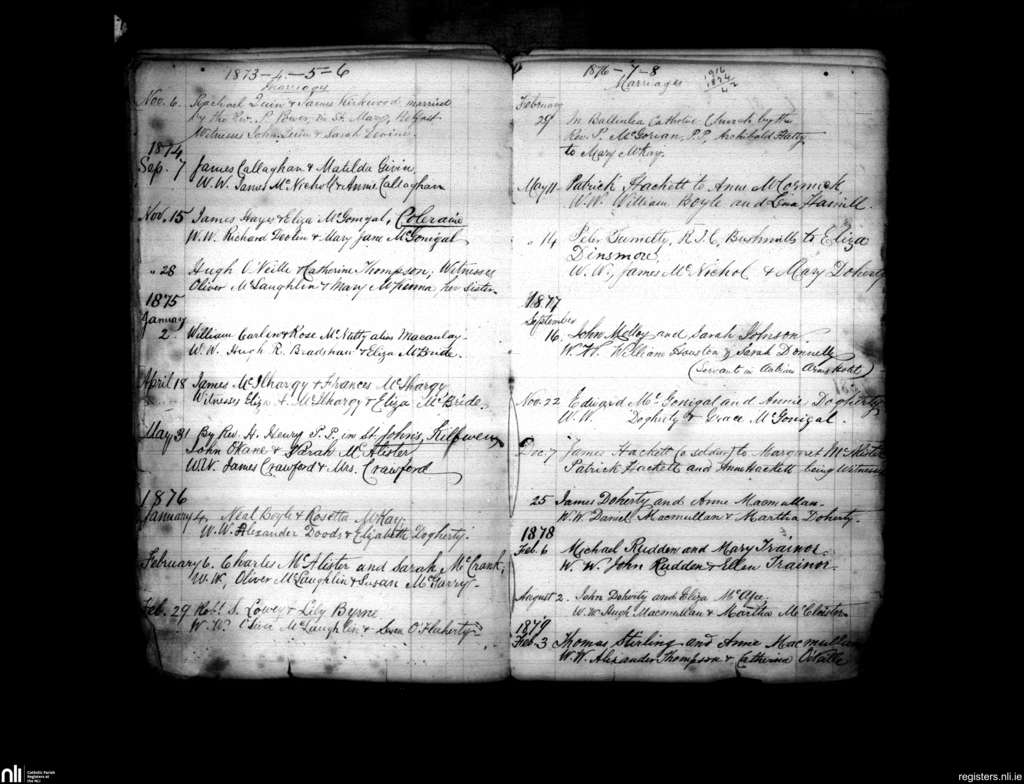 1873-4-5-6
Marriages
Nov. 6. Rachael Quin & James Kirkwood married
by the Rev. P. Power, in St. Marys, Belfast
Witnesses John Quin & Sarah Devine.
1874
Sep. 7 James Callaghan & Matilda Givin,
W.W. James McNicholl & Annie Callaghan
Nov. 15 James Hayes & Eliza McGonigal, Coleraine
W.W. Richard & Mary Jane McGonigal
" 28 Hugh O'Neille & Catherine Thompson; Witnesses
Oliver McLaughlin & Mary McKenna her sister
1875
January
2 William Carlin & Rose McNatty alias Macaulay.
W.W. Hugh R. Bradshaw & Eliza McBride.
April 18 James McIlhargy & Frances McIlhargy
Witnesses Eliza A. McIlhargy & Eliza McBride.
May 31 By Rev. H. Henry P.P. in St. John's, Killowen,
John OKane & Sarah McAlister
W.W. James Crawford & Mrs. Crawford
1876
January 4, Neal Boyle & Rosetta McKay.
W.W. Alexander Doods & Elizabeth Dogherty.
February 6. Charles McAlister and Sarah McCrank,
W.W, Oliver McLaughlin & Susan McGarry
Feb. 29 Robt. S. Lowry & Lily Byrne
W.W. Oliver McLaughlin & O'Flaherty
1876-7-8
Marriages
1916
1874
42
February
29 In Ballinlea Catholic Church by the
Rev. P. McGowan, P.P, Archibald
to Mary McKay.
May 11 Patrick Hackett to Anne McCormick,
W.W. William Boyle and Hamill.
" 14 Peter R.I.C, Bushmills to Eliza
Dinsmore,
W.W, James McNichol & Mary Doherty
1877
September
16, John and Sarah Johnson.
W.W. William Hauston & Sarah Donnelly
(Servant in Antrim Arms Hotel)
Nov. 22 Edward McGonigal and Annie Dogherty
W.W. Dogherty & Grace McGonigal.
Dec. 7 James Hackett (a soldier) to Margaret McAlister
Patrick Hackett and Anne Hackett being Witnesses
25 James Doherty and Anne Macmullan.
W.W. Daniel Macmullan & Martha Doherty.
1878
Feb. 6 Michael Rudden and Mary Trainor.
W.W. John Rudden & Ellen Trainor.
August 2. John Doherty and Eliza McAfee.
W.W Hugh Macmullan & Martha
1879
Feb. 3 Thomas Stirling and Annie Macmullan
W.W. Alexander Thompson & Catherine
nli
Catholic Parish
Registers at
the NLI
registers.nli.ie